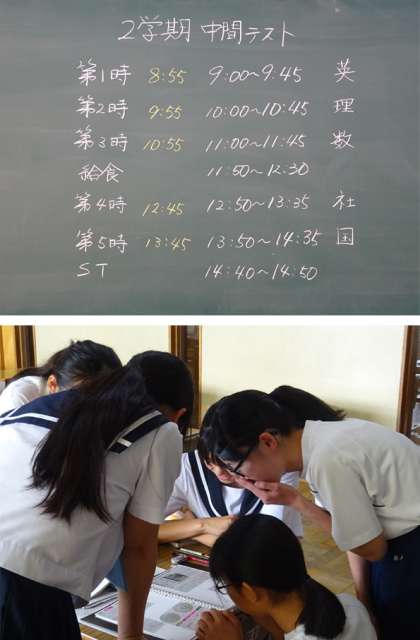 2学期 中間テスト
第1時 8:55 9:00~9:45 英
第2時 9:55 10:00~10:45 理
第3時 10:55 11:00~11:45 数
給食 11:50~12:30
第4時 12:45 12:50~13:35 社
第5時 13:45 13:50~14:35 国
ST 14:40~14:50